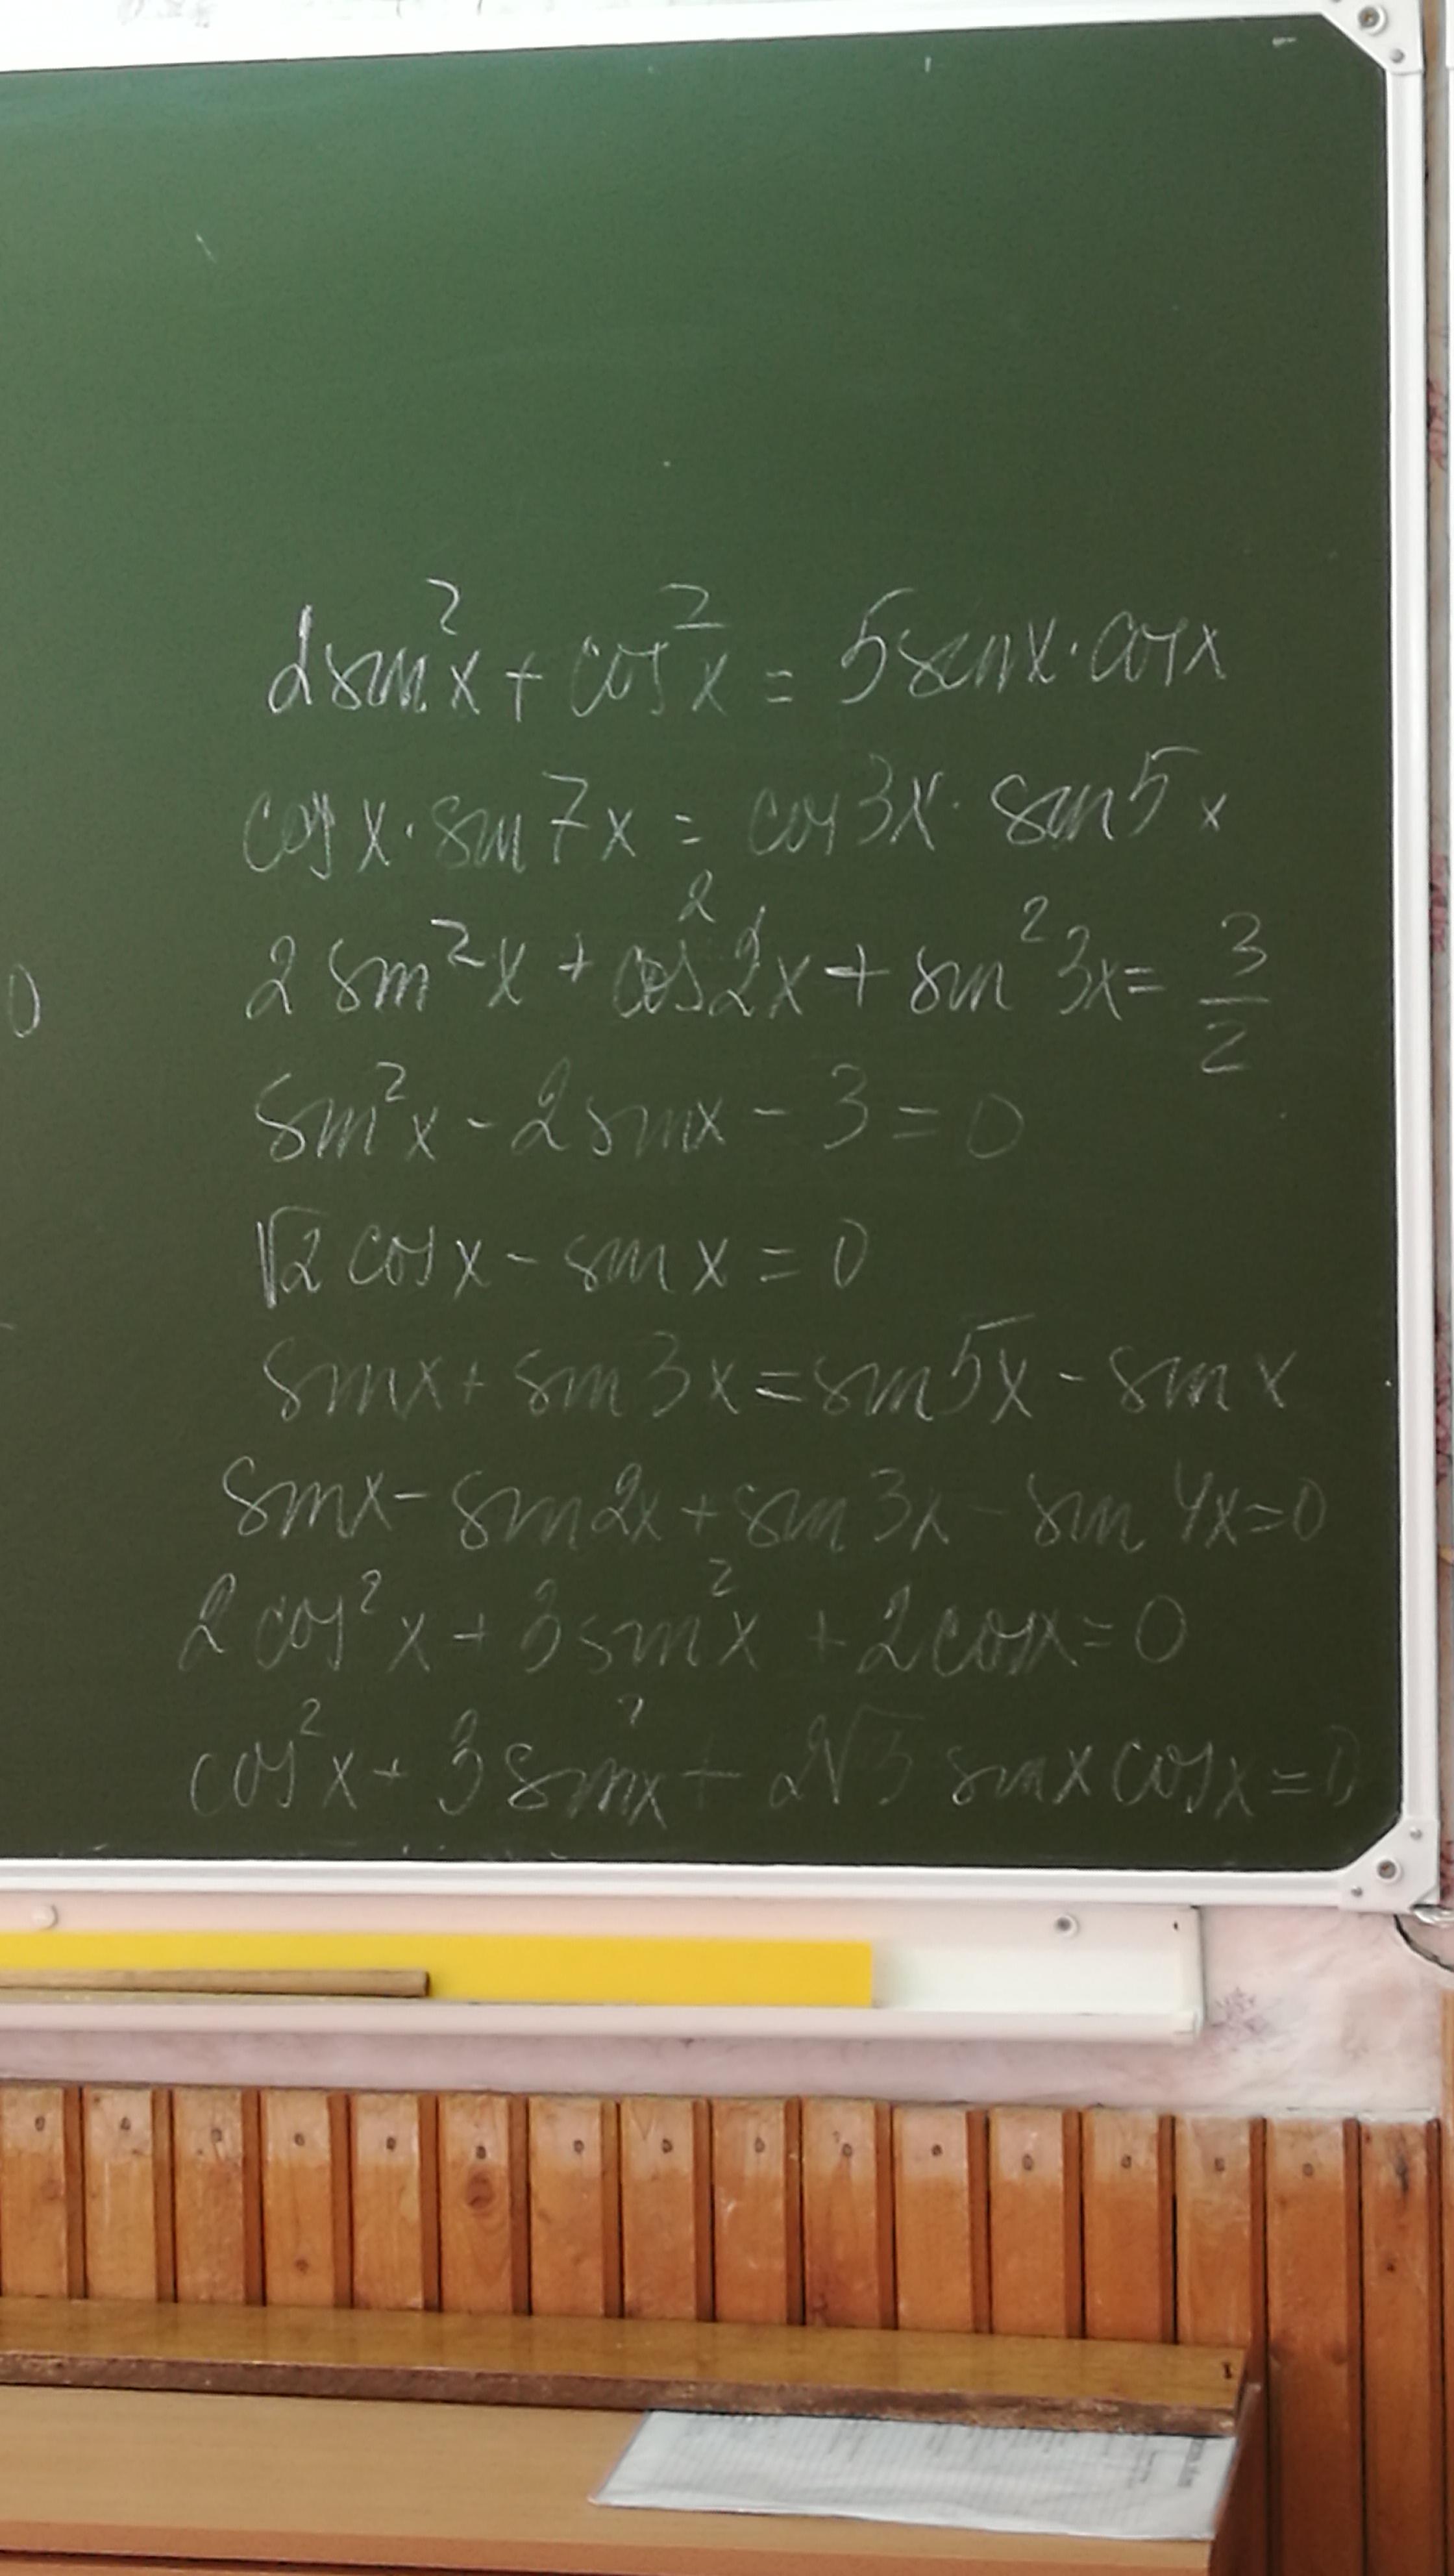 2sin²x + cos²x = 5sinx·cosx
cosx·sin7x = cos3x·sin5x
2sin²x + cos²2x + sin²3x = 3/2
0
sin²x - 2sinx - 3 = 0
√2 cosx - sinx = 0
sinx + sin3x = sin5x - sinx
sinx - sin2x + sin3x - sin4x = 0
2cos²x + 3sin²x + 2cosx = 0
cos²x + 3sin²x + 2√3 sinx cosx = 0